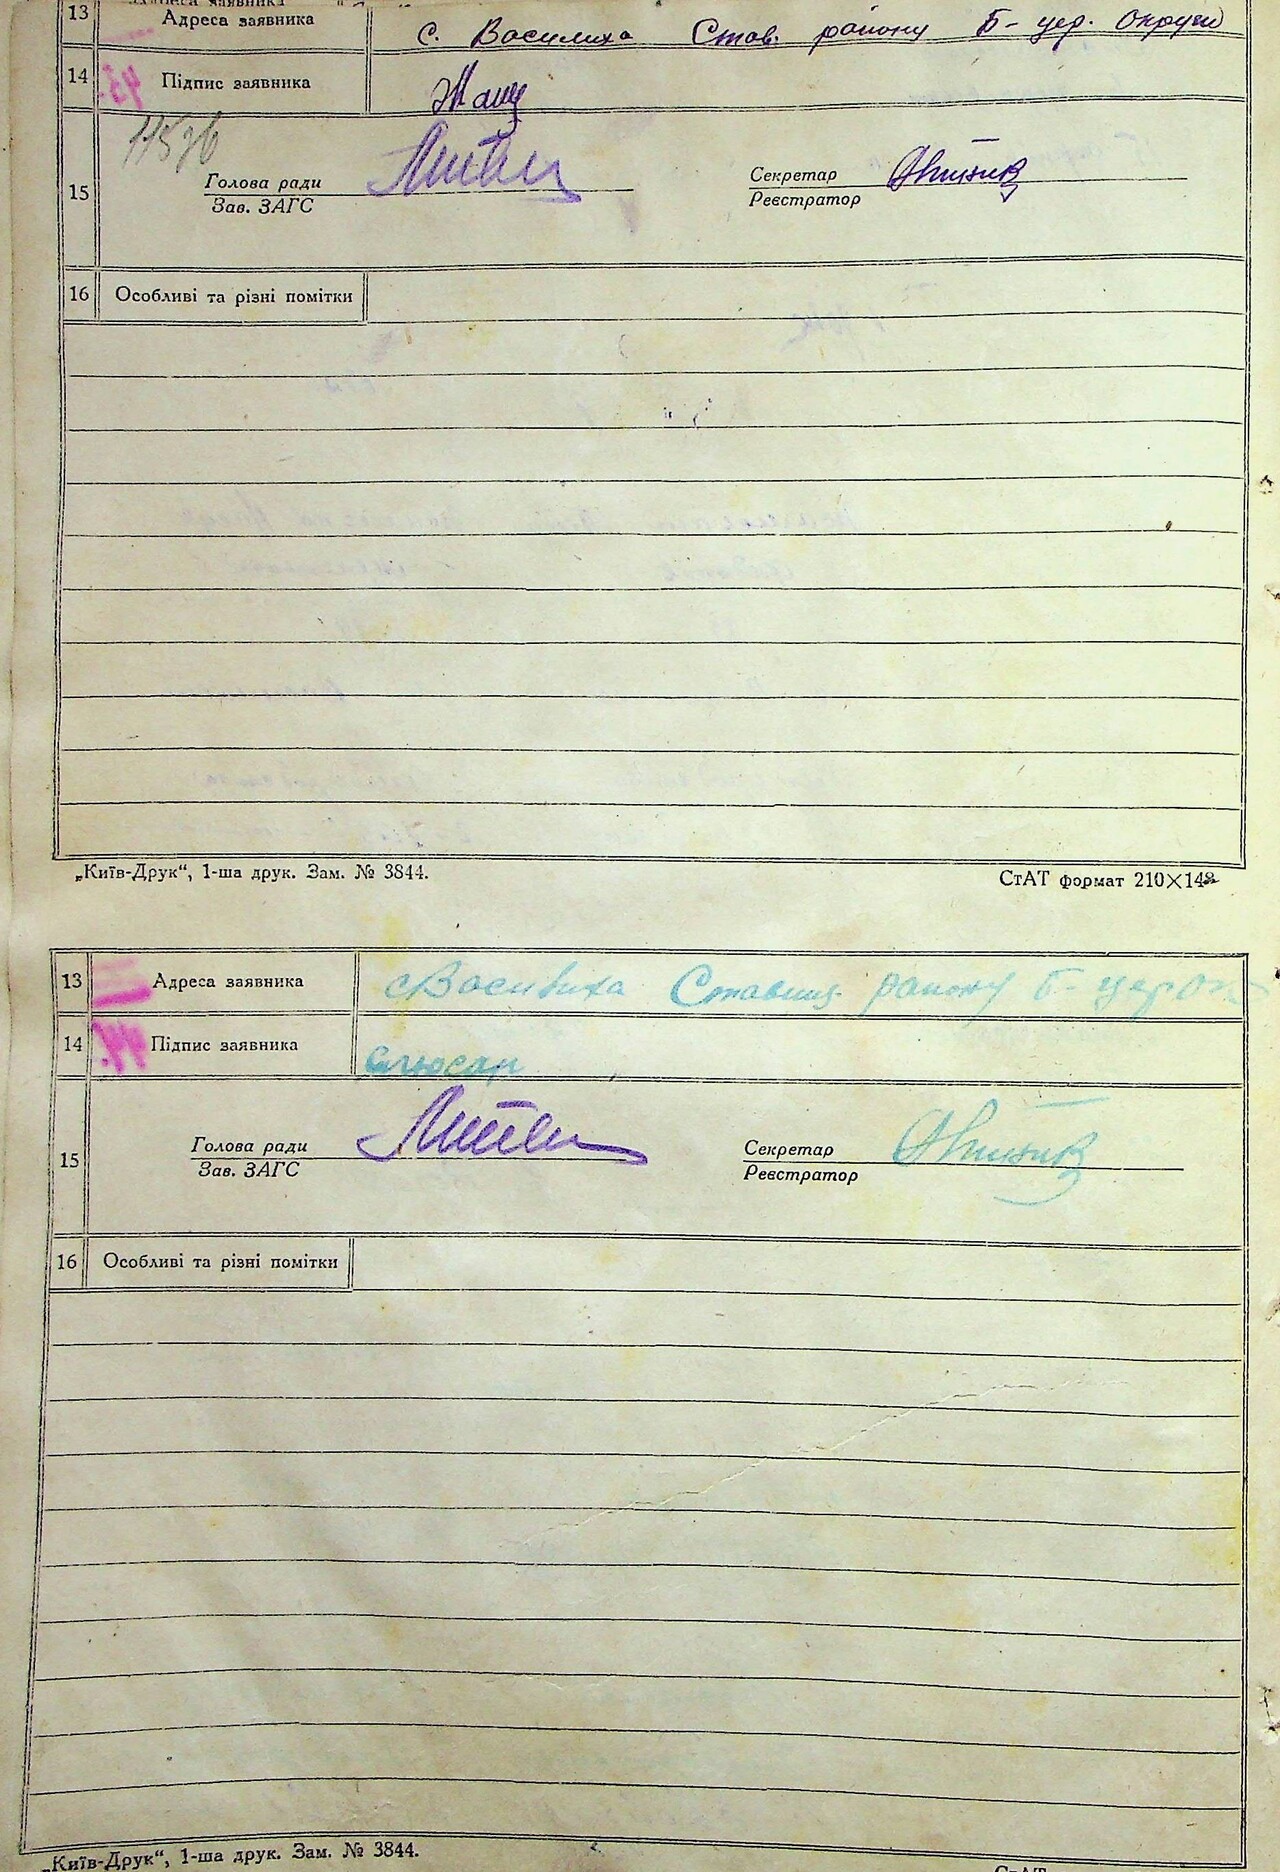 13 Адреса заявника с. Василиха Став. району Б-цер. Округи
14 Підпис заявника
11536
15 Голова ради Литвин Секретар
Зав. ЗАГС Реєстратор
16 Особливі та різні помітки
„Київ-Друк“, 1-ша друк. Зам. № 3844. СтАТ формат 210×148
13 Адреса заявника с Василиха Ставищ. району Б-цер Ок
14 Підпис заявника Слюсар
15 Голова ради Литвин Секретар
Зав. ЗАГС Реєстратор
16 Особливі та різні помітки
„Київ-Друк“, 1-ша друк. Зам. № 3844.